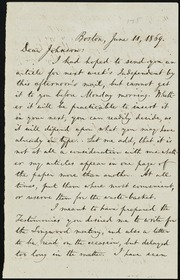 Boston, June 10, 1869.
Dear Johnson:
I had hoped to send you an
article for next week's Independent by
this afternoon's mail, but cannot get
it to you before Monday morning. Wheth-
er it will be practicable to insert it
in your next, you can readily decide, as
it will depend upon what you may have
already in type. Let me add, that it is
not at all a consideration with me wheth-
er my articles appear on one page of
the paper more than another. At all
times, put them where most convenient,
or reserve them for the waste-basket.
I meant to have prepared the
Testimonies you desired me to write for
the Longwood meeting, and also a letter
to be read on the occasion, but delayed
too long in the matter. I have seen